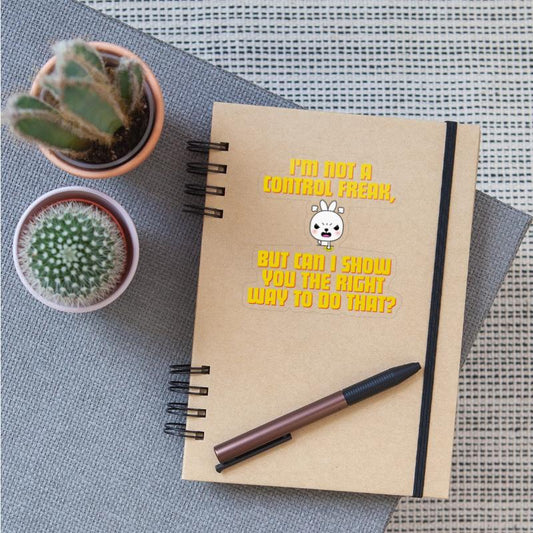 I'M NOT A
CONTROL FREAK,
BUT CAN I SHOW
YOU THE RIGHT
WAY TO DO THAT?